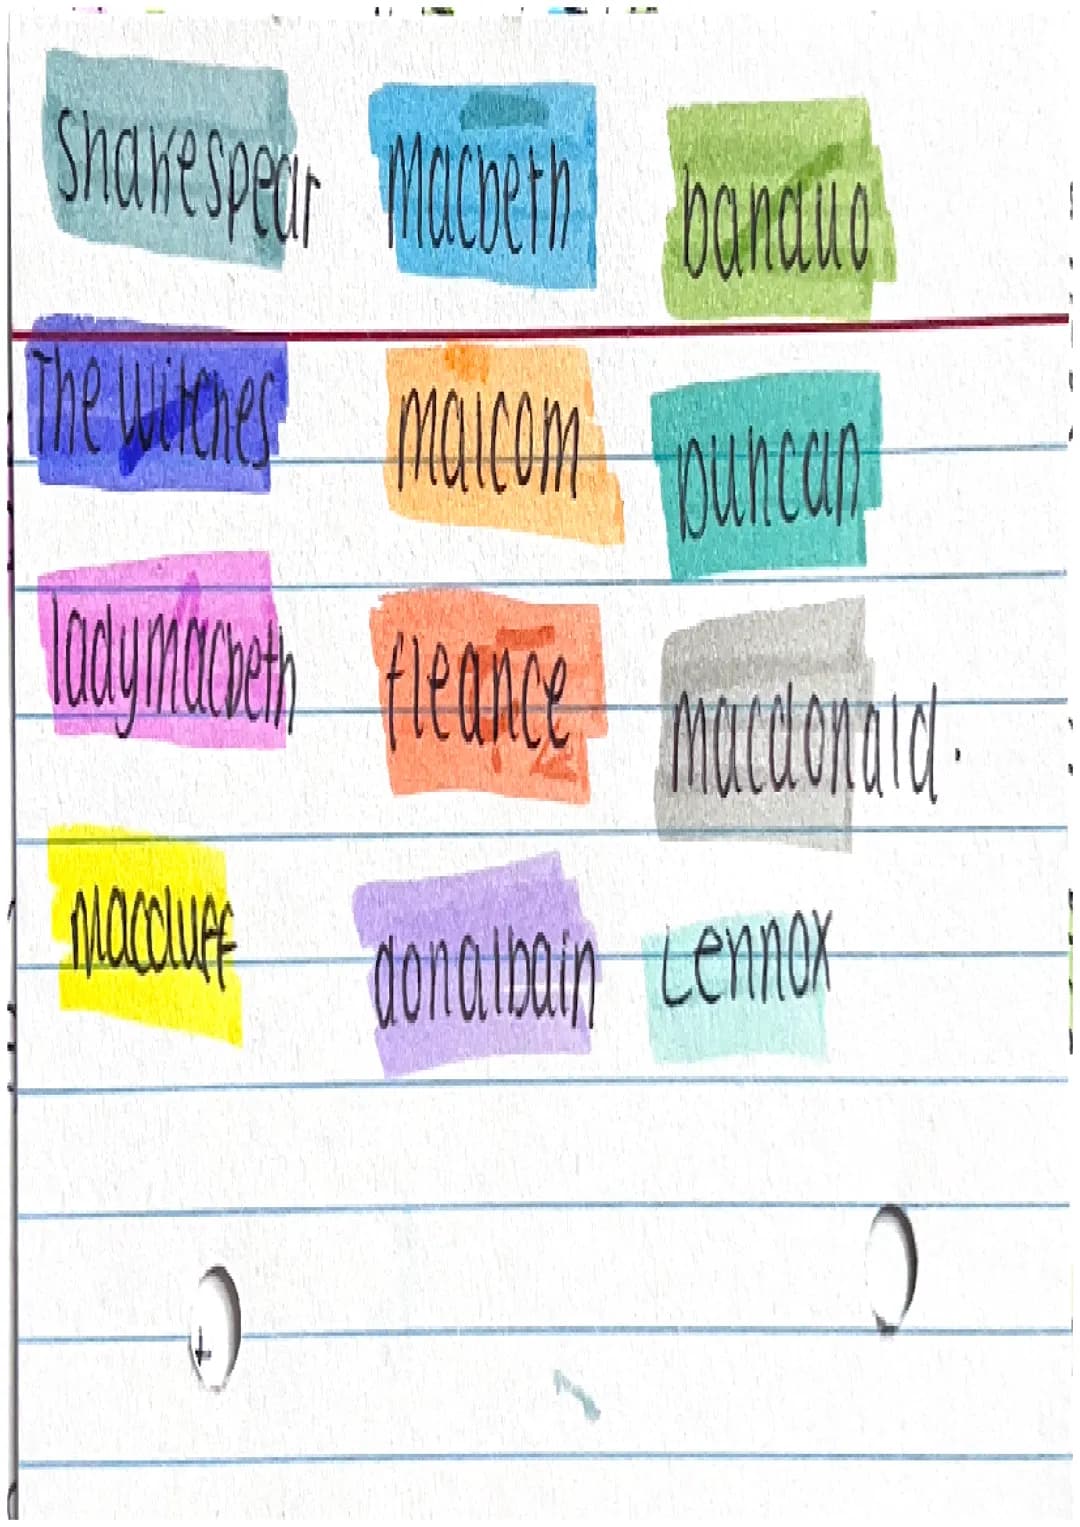 Shakespear Macbeth banquo
The Witches malcom Duncan
lady macbeth fleance macdonald.
macduff donalbain Lennox